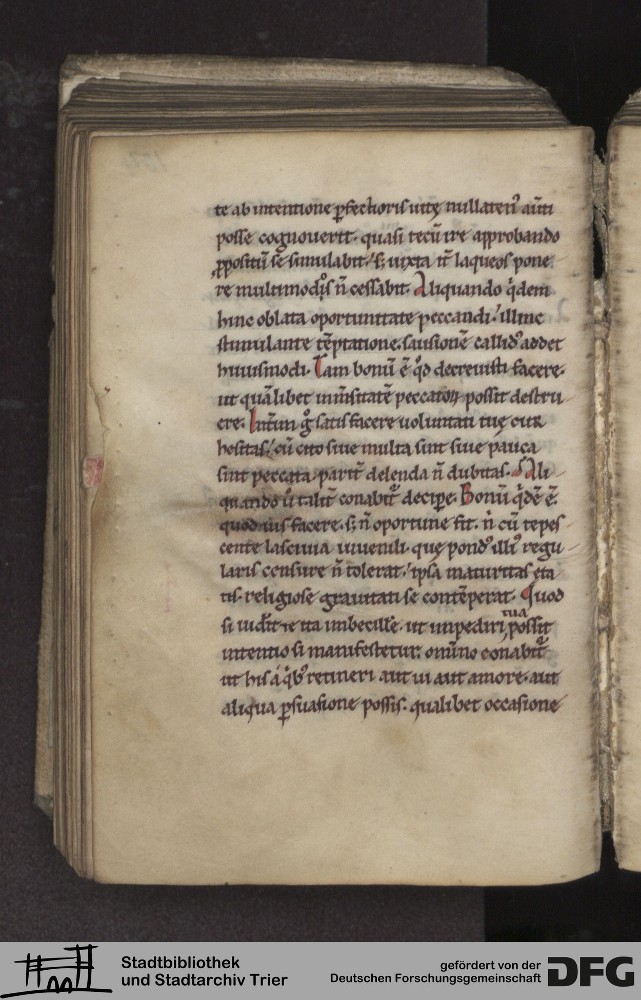 te ab intentione ꝑfectioris uitę nullaten᷒ aūti
posse cognouerit. quasi tecū ire approbando
ꝓpositū se simulabit. s; iuxta it̄ laqueos pone
re multimodis n̄ cessabit. Aliquando qͥdem
hinc oblata oportunitate peccandi. illinc
stimulante tēptatione. suasionē callid᷒ addet
huiusmodi. Tam bonū ē qd̄ decreuisti facere.
ut quālibet inm̄sitatē peccatoꝝ possit destru
ere. Int̄im gͦ satisfacere uoluntati tuę cur
hesitas. cū cito siue multa sint siue pauca
sint peccata. parit̄ delenda n̄ dubitas. Ali
quando ū talit̄ conabit᷑ decipe. Bonū qͥdē ē.
quod uis facere. s; n̄ oportune fit. nͥ cū tepes
cente lasciuia iuuenili. que pond᷒ illi᷒ regu
laris censure n̄ tolerat. ipsa maturitas eta
tis. religiose grauitati se contēperat. Quod
si uiderit te ita imbecille. ut impediri tua possit
intentio si manifestetur. omīno conabit᷑
ut his a qͥb᷒ retineri aut ui aut amore. aut
aliqua ꝑsuasione possis. qualibet occasione
Stadtbibliothek
und Stadtarchiv Trier
gefördert von der
Deutschen Forschungsgemeinschaft
DFG